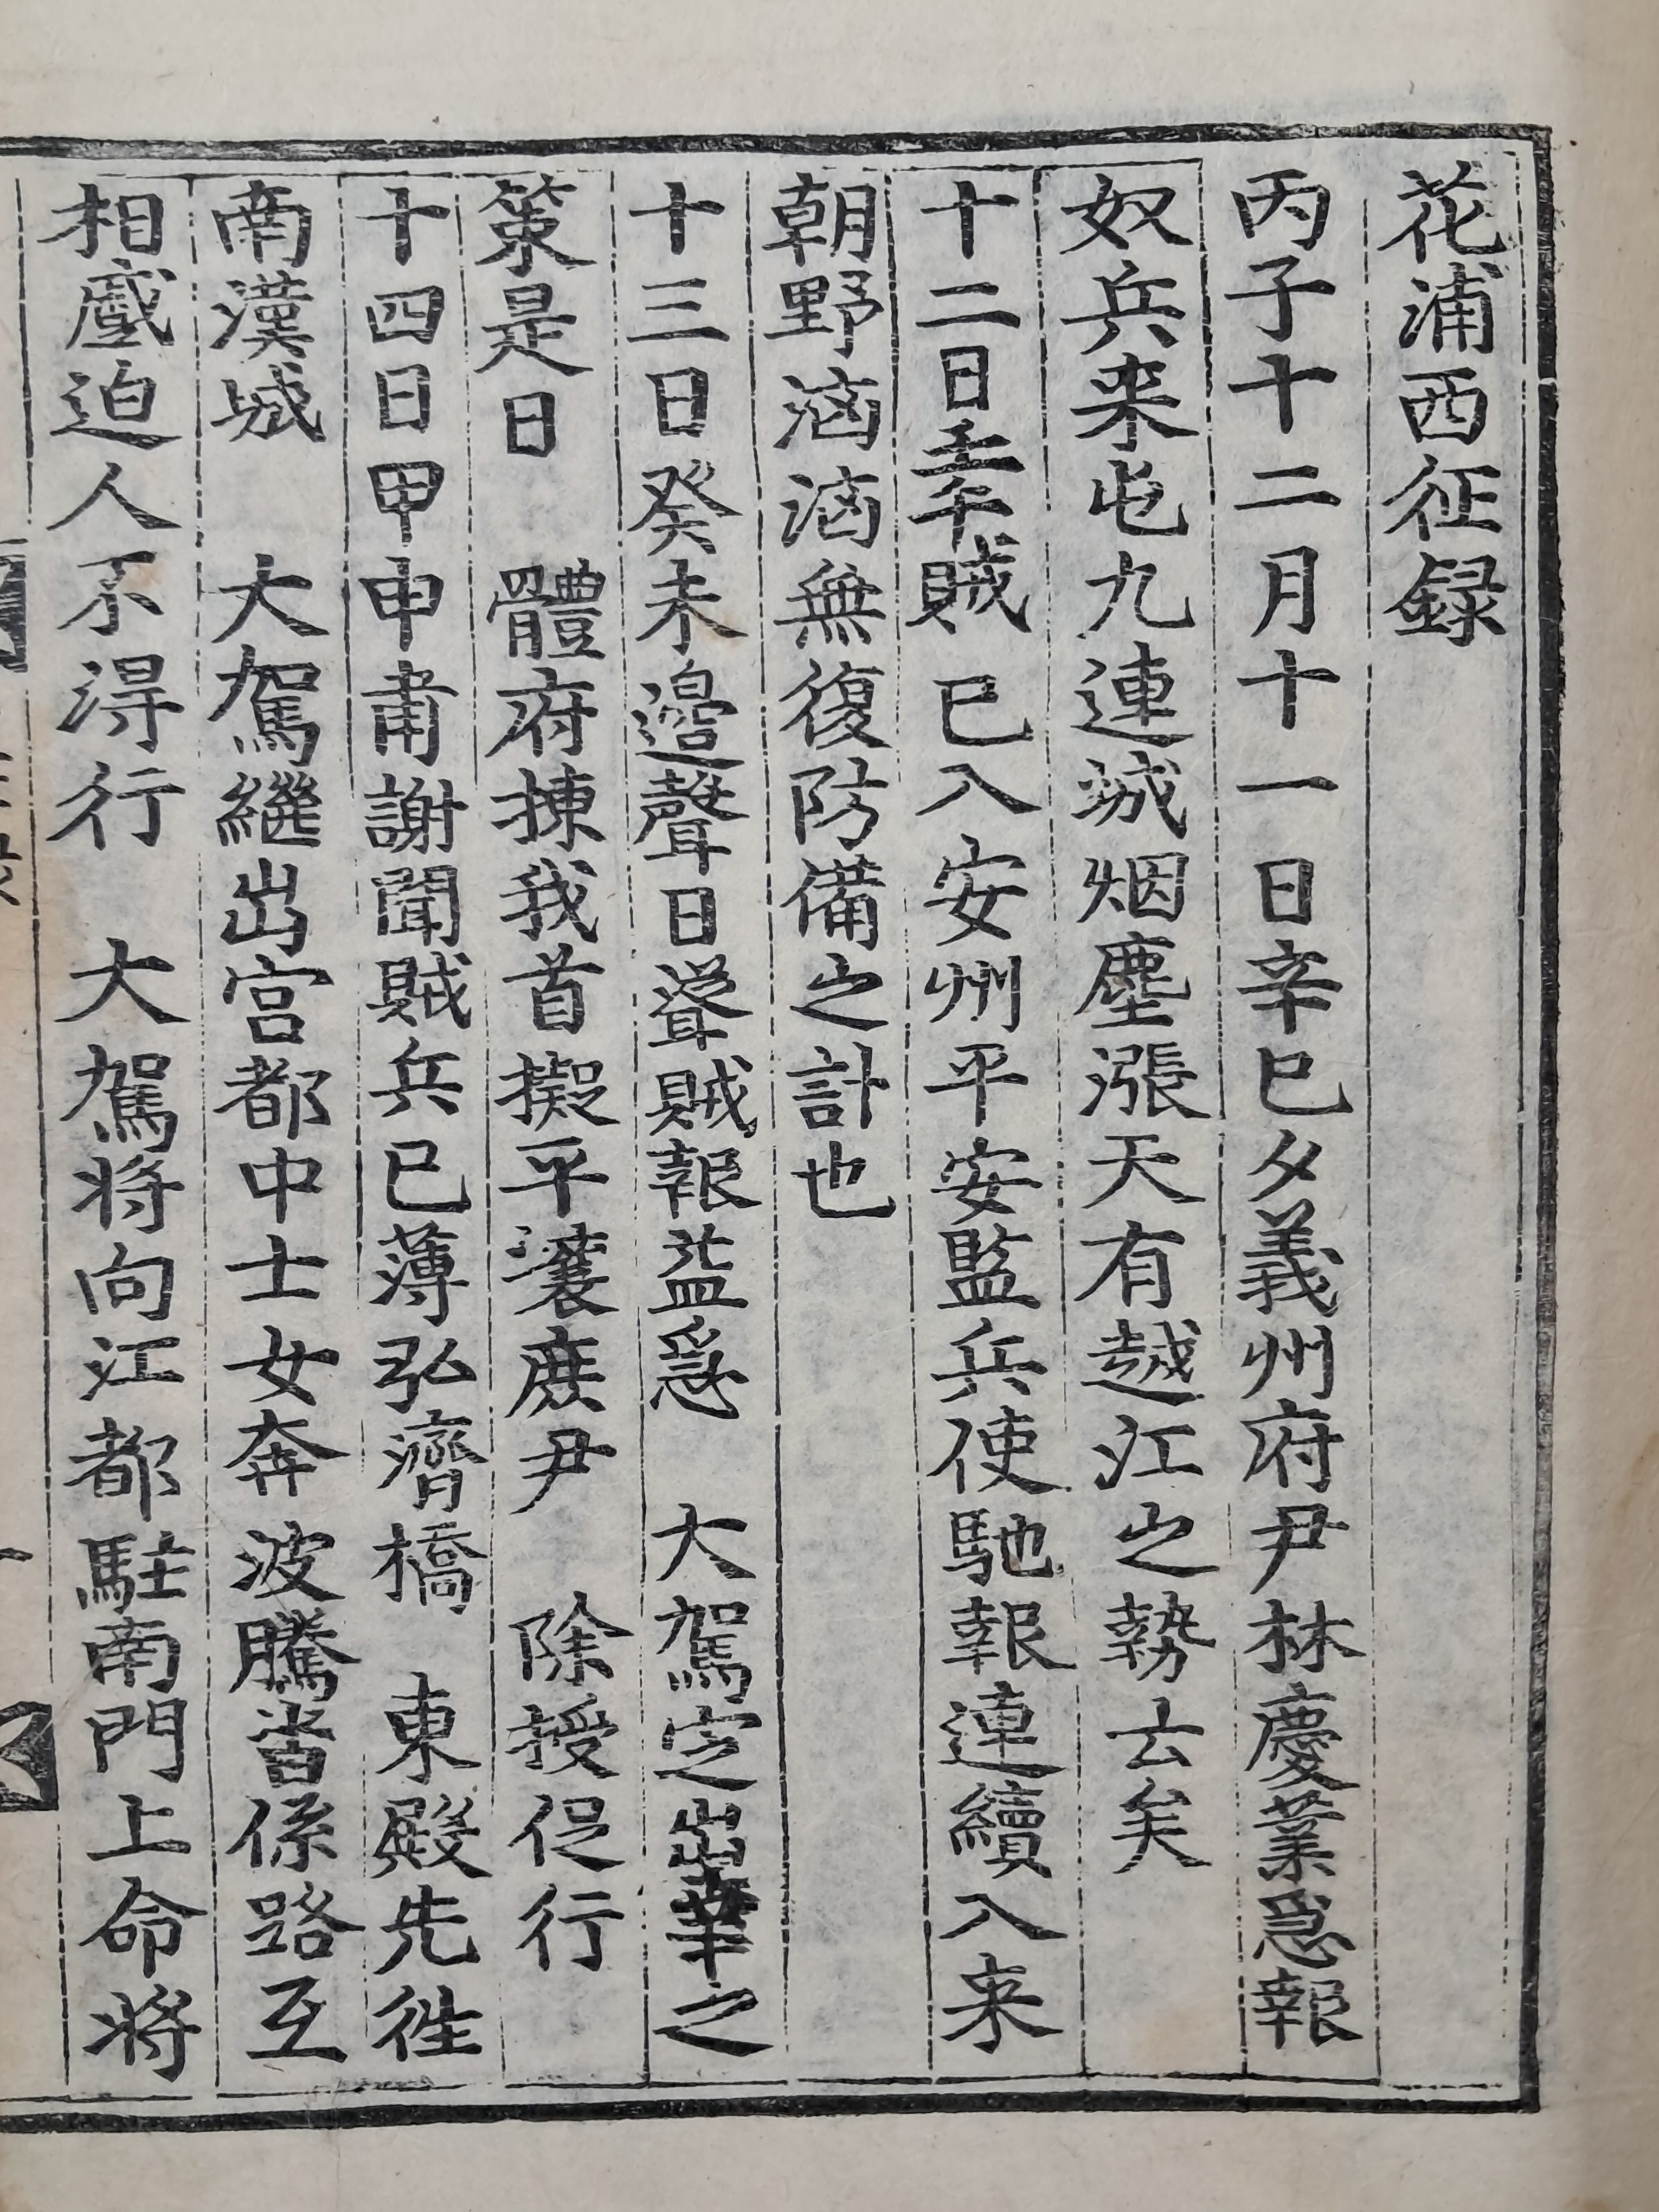 花浦西征録
丙子十二月十一日辛巳夕義州府尹林慶業急報
奴兵来屯九連城烟塵漲天有越江之勢云矣
十二日壬午賊已入安州平安監兵使馳報連續入来
朝野無復防備之計也
十三日癸未邊聲日聳賊報益急 大駕定出之
策是日 體府揀我首擬平壤庶尹 除授促行
十四日甲申肅謝聞賊兵已薄弘濟橋 東殿先徃
南漢城 大駕繼出宮都中士女奔波騰沓係路互
相蹙迫人不得行 大駕将向江都駐南門上命将